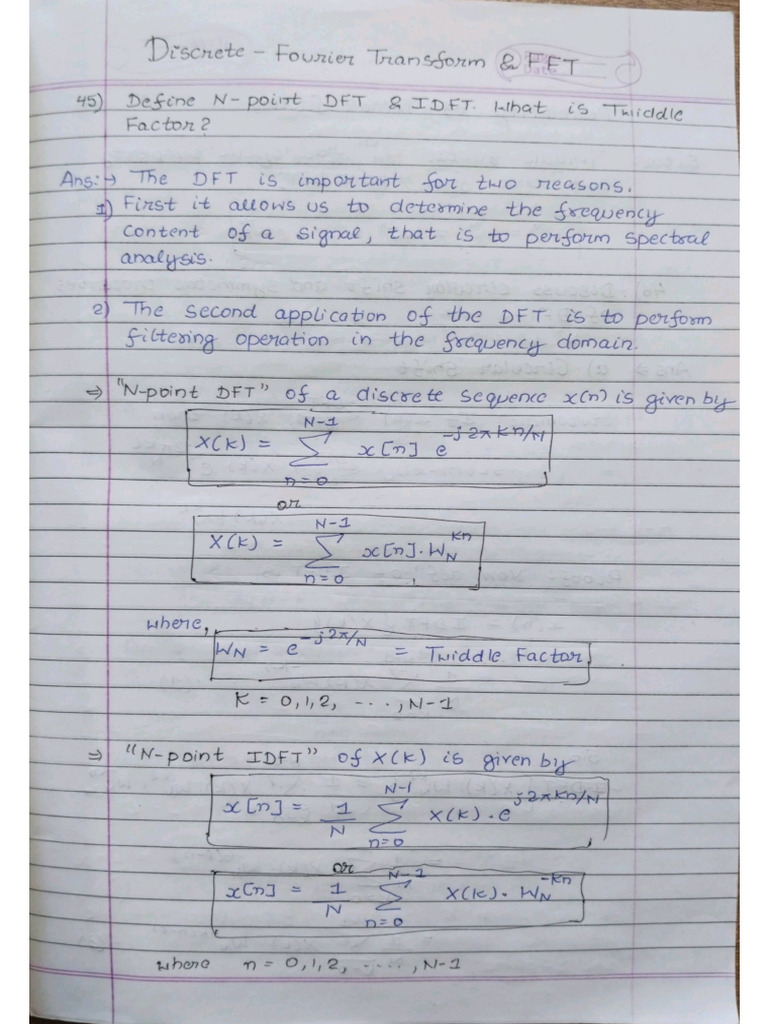 Discrete - Fourier Transform & FFT
45) Define N-point DFT & IDFT. What is Twiddle
Factor?
Ans:→ The DFT is important for two reasons.
1) First it allows us to determine the frequency
content of a signal, that is to perform spectral
analysis.
2) The second application of the DFT is to perform
filtering operation in the frequency domain.
⇒ "N-point DFT" of a discrete sequence x(n) is given by
X(k) = ∑_{n=0}^{N-1} x[n] e^{-j2πkn/N}
or
X(k) = ∑_{n=0}^{N-1} x[n]. W_N^{kn}
where,
W_N = e^{-j2π/N} = Twiddle Factor
K = 0,1,2, ...., N-1
⇒ "N-point IDFT" of X(k) is given by
x[n] = 1/N ∑_{n=0}^{N-1} X(k). e^{j2πkn/N}
or
x[n] = 1/N ∑_{n=0}^{N-1} X(k). W_N^{-kn}
where n = 0,1,2, ....., N-1